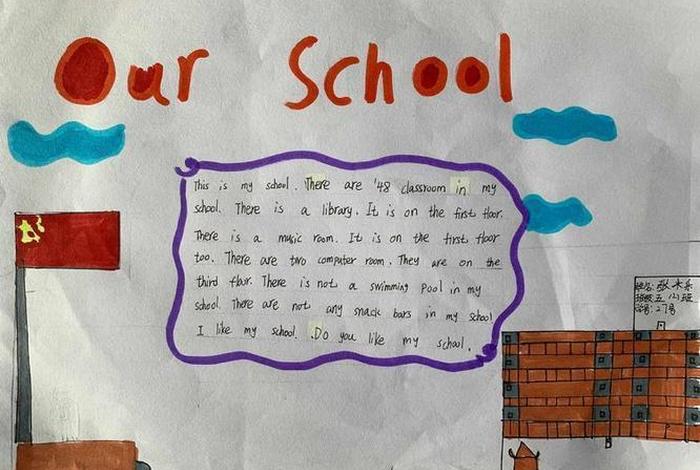 Our School
This is my school. There are '48 classroom in my
school. There is a library. It is on the first floor.
There is a music room. It is on the first floor
too. There are two computer room. They are on the
third floor. There is not a swimming pool in my
school. There are not any snack bars in my school
I like my school. Do you like my school.
姓名: 张
班级: 五 班
学号: 27号